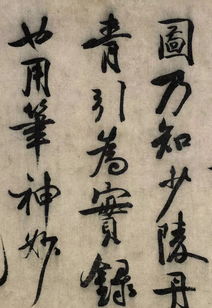 圖乃知少陵丹
青引為實錄
也用筆神妙